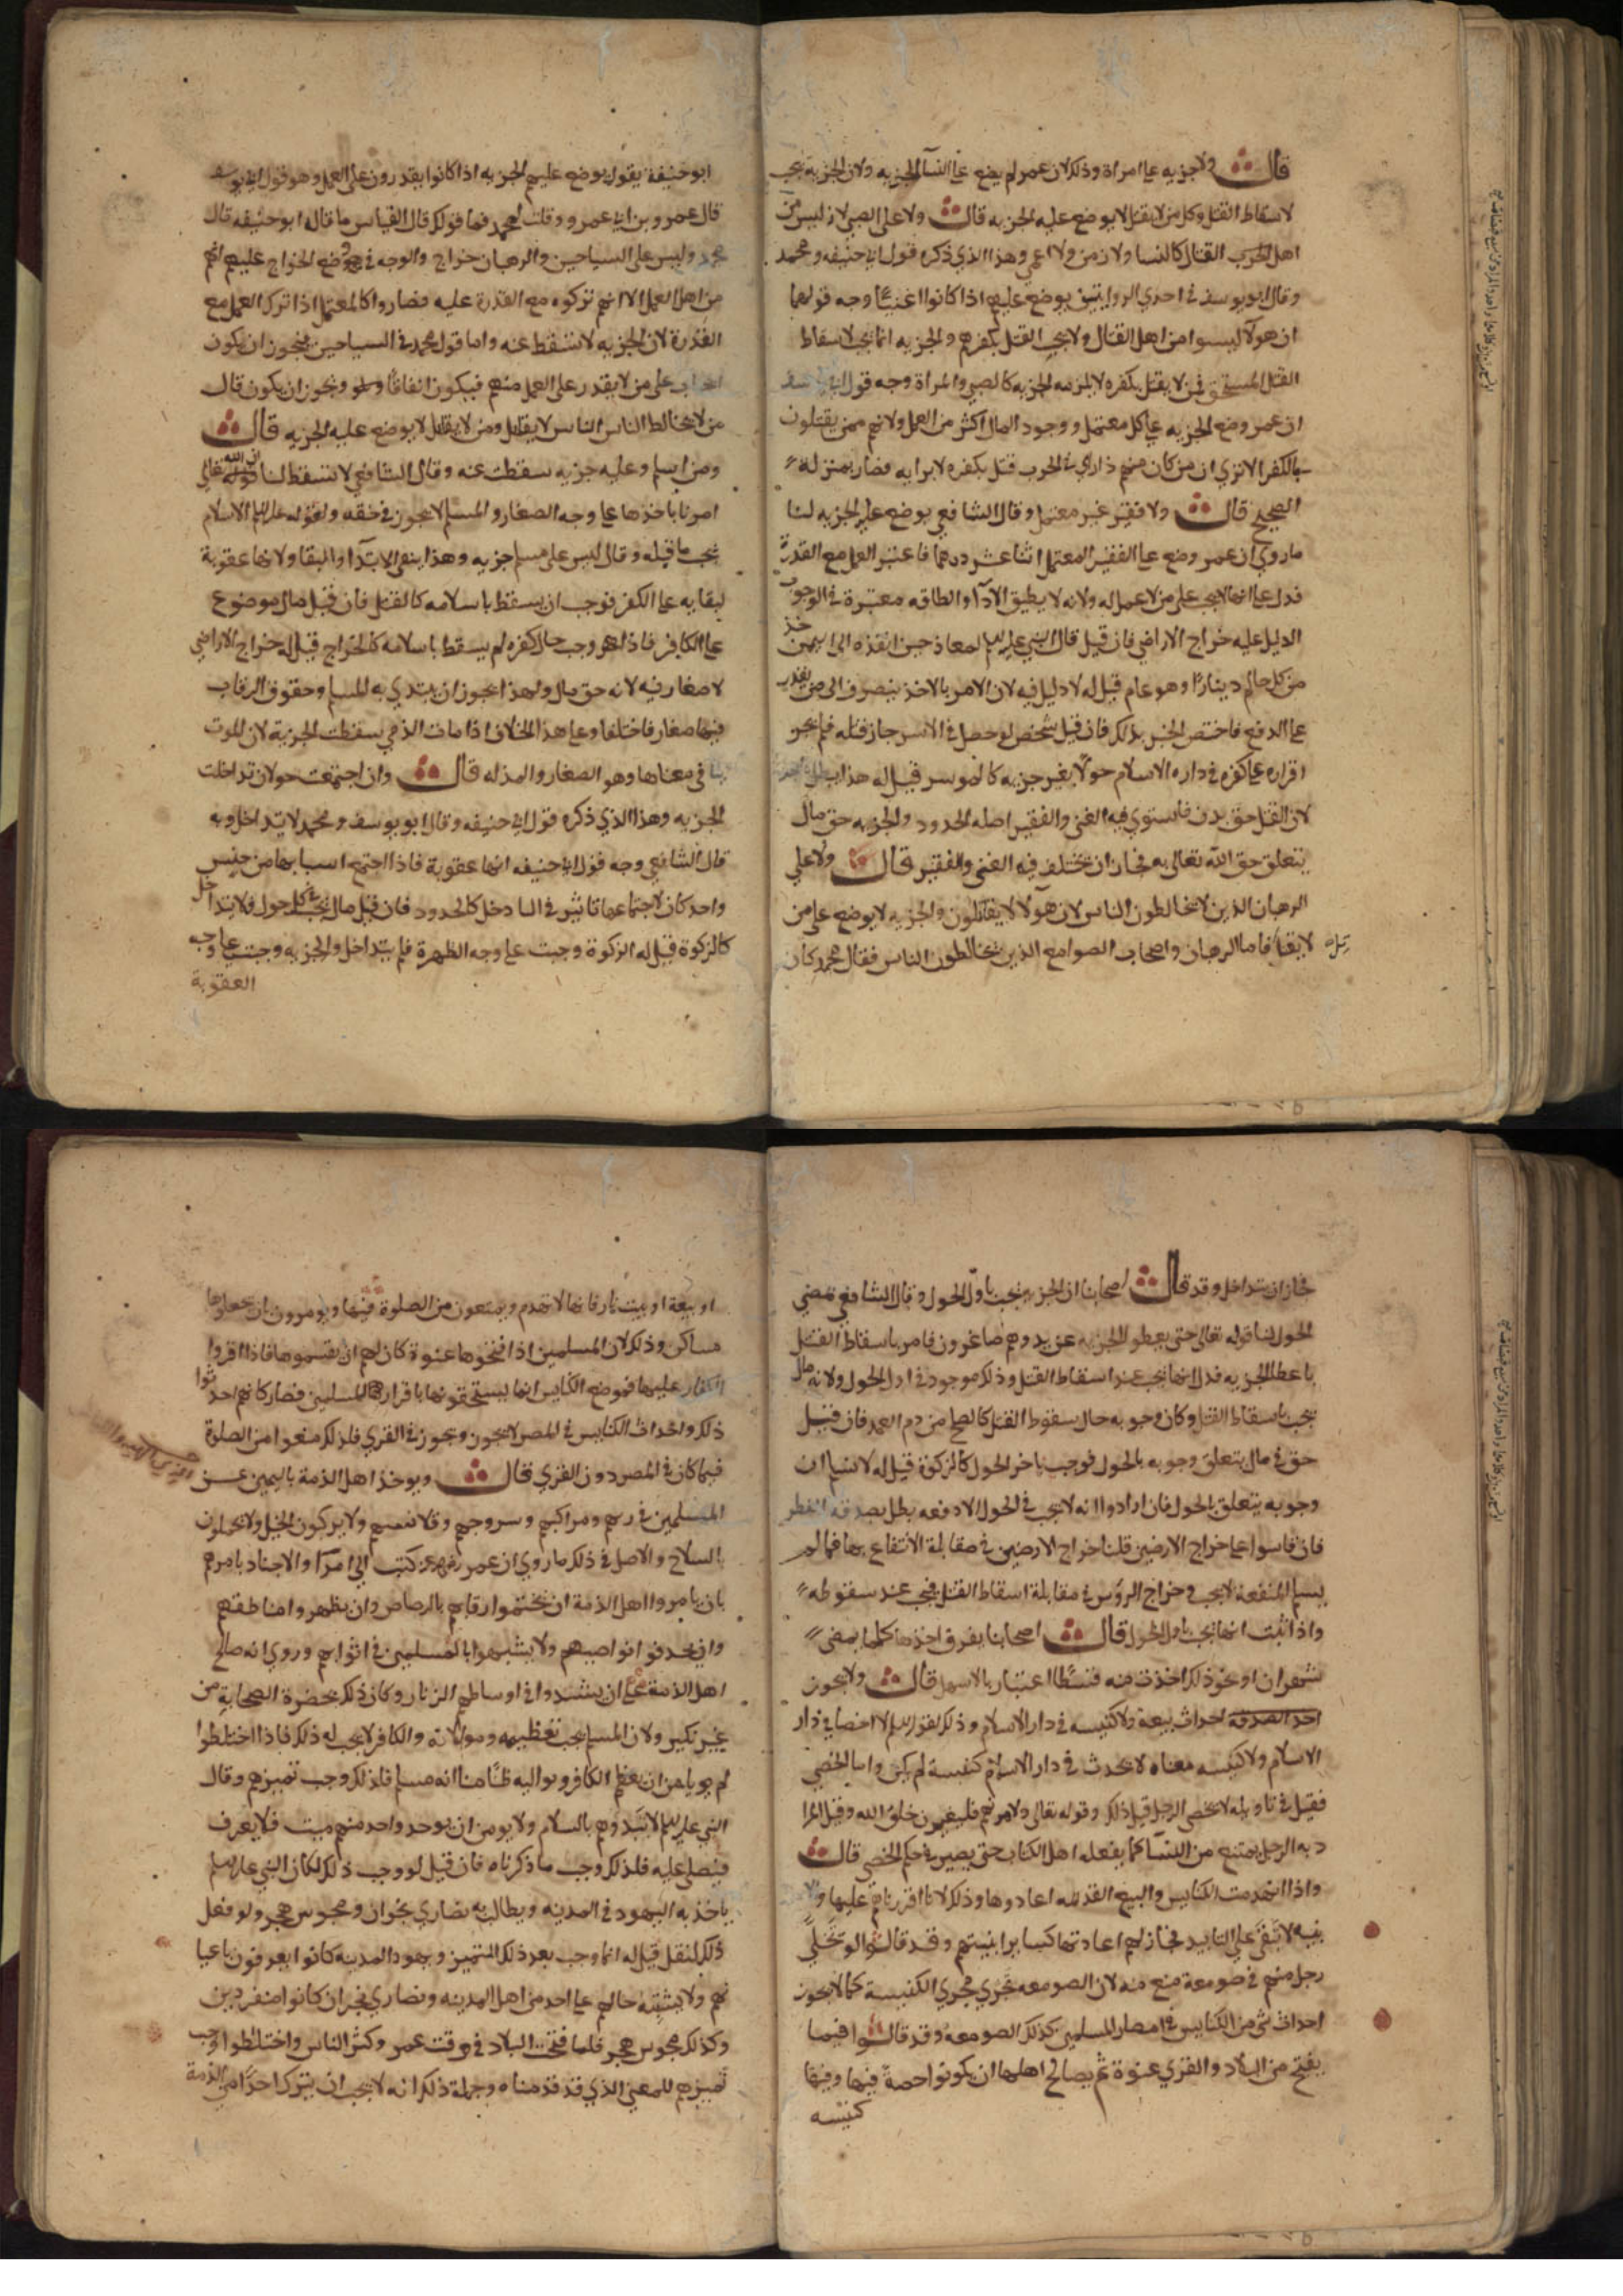 قال ولا جزيه على امراة وذلك لان عمر لم يضع على النسآ الجزيه ولان الجزية تجب
لاسقاط القتل وكل من لا يقتل لا يوضع عليه الجزيه قال ولا على الصبي لانه ليس من
اهل الحرب القتال كالنسا ولا زمن ولا اعمي وهذا الذي ذكره قول ابي حنيفه ومحمد
وقال ابو يوسف في احدي الروايتين يوضع عليهم اذا كانوا اغنيآ وجه قولهما
ان هولآ ليسوا من اهل القتال ولا يجب القتل بكفرهم والجزيه انما تجب لاسقاط
القتل المستحق فمن لا يقتل بكفره لا يلزمه الجزيه كالصبي والمراة وجه قول ابي يوسف
ان عمر وضع الجزيه على كل معتمل ووجود المال اكثر من العمل ولانهم ممن يقتلون
بالكفر الا تري ان من كان منهم ذا راي في الحرب قتل بكفره لا برايه فصار بمنزلة
الصحيح قال ولا فقير غير معتمل وقال الشافعي يوضع عليه الجزيه لنا
ما روي ان عمر وضع على الفقير المعتمل اثنا عشر درهما فاعتبر العمل مع القدرة
فدل على انها لا تجب على من لا عمل له ولانه لا يطيق الادآ والطاقه معتبرة في الوجوب
الدليل عليه خراج الاراضي فان قيل قال النبي عليه السلم لمعاذ حين انفذه الى اليمن خذ
من كل حالم دينارًا وهو عام قيل له لا دليل فيه لان الامر بالاخذ ينصرف الى من يقدر
على الدفع فاختص الخبر بذلك فان قيل شخص لو حصل في الاسر جاز قتله فلم يجز
اقراره على كفره في دار الاسلام حولًا بغير جزيه كالموسر قيل له هذا باطل
لان القتل حق بدن فاستوي فيه الغني والفقير اصله الحدود والجزيه حق مال
يتعلق حق الله تعالى به فجاز ان تختلف فيه الغني والفقير قال ولا على
الرهبان الذين لا يخالطون الناس لان هولآ لا يقاتلون والجزيه لا يوضع على من
لا يقتل فاما الرهبان واصحاب الصوامع الذين يخالطون الناس فقال محمد كان
ابو حنيفة يقول يوضع عليهم الجزيه اذا كانوا يقدرون على العمل وهو قول ابي يوسف
قال عمرو بن ابي عمرو وقلت لمحمد فما قولك قال القياس ما قال ابو حنيفه قال
محمد وليس على السياحين والرهبان خراج والوجه في وضع الخراج عليهم انهم
من اهل العمل الا انهم تركوه مع القدرة عليه فصاروا كالمعتمل اذا ترك العمل مع
القدرة لان الجزيه لا تسقط عنه واما قول محمد في السياحين فيجوز ان يكون
على من لا يقدر على العمل منهم فيكون اتفاقًا ويجوز ان يكون قال
من لا يخالط الناس الناس لا يقاتل ومن لا يقاتل لا يوضع عليه الجزيه قال
ومن اسلم وعليه جزيه سقطت عنه وقال الشافعي لا تسقط لنا ان الله تعالى
امرنا باخذها على وجه الصغار والمسلم لا يجوز في حقه ولقوله عليه السلم الاسلام
يجب ما قبله وقال ليس على مسلم جزيه وهذا ينفي الابتدآ والبقا ولانها عقوبة
لبقايه على الكفر فوجب ان يسقط باسلامه كالقتل فان قيل مال موضوع
على الكافر فاذا وجب حال كفره لم يسقط باسلامه كالخراج قيل له خراج الاراضي
لا صغار فيه لانه حق مال ولهذا يجوز ان يبتدي به المسلم وحقوق الرقاب
فيها صغار فاختلفا وعلى هذا الخلاف اذا مات الذمي سقطت الجزية لان الموت
في معناها وهو الصغار والمذله قال وان اجتمعت حولان تداخلت
الجزيه وهذا الذي ذكره قول ابي حنيفه وقال ابو يوسف ومحمد لا يتداخل وبه
قال الشافعي وجه قول ابي حنيفه انها عقوبة فاذا اجتمع اسبابها من جنس
واحد كان لاجتماعها تاثير في التداخل كالحدود فان قيل مال يجب في كل حول فلا يتداخل
كالزكوة قيل له الزكوة وجبت على وجه الطهرة فلم يتداخل والجزيه وجبت على وجه
العقوبة
فجاز ان تتداخل وقد قال اصحابنا ان الجزيه تجب باول الحول وقال الشافعي بمضي
الحول لنا قوله تعالى حتى يعطوا الجزيه عن يد وهم صاغرون فامر باسقاط القتل
باعطا الجزيه فدل انها تجب عند اسقاط القتل وذلك موجود في اول الحول ولانه مال
يجب باسقاط القتل وكان وجوبه حال سقوط القتل كالصلح من دم العمد فان قيل
حق في مال يتعلق وجوبه بالحول فوجب باخر الحول كالزكوة قيل له لا نسلم ان
وجوبه يتعلق بالحول فان ارادوا انه لا يجب في الحول الا دفعه بطل بصدقه الفطر
فان قاسوا على خراج الارضين قلنا خراج الارضين في مقابلة الانتفاع بها فما لم
يسلم المنفعه لا يجب وخراج الروس في مقابلة اسقاط القتل فيجب عند سقوطه
واذا ثبت انها تجب باول الحول قال اصحابنا يفرق اخذها كلما يمضي
شهران او نحو ذلك اخذت منه قسطًا اعتبارا بالاسهل قال ولا يجوز
احداث بيعة ولا كنيسه في دار الاسلام وذلك لقوله عليه السلم لا اخصا في دار
الاسلام ولا كنيسه معناه لا يحدث في دار الاسلام كنيسة لم تكن واما الخصي
فقيل في تاويله لا يخصي الرجل قيل ذلك وقوله تعالى ولآمرنهم فليغيرن خلق الله وقيل المراد
به الرجل يمتنع من النسآ كما يفعله اهل الكتاب حتى يصير في حكم الخصي قال
واذا انهدمت الكنايس والبيع القديمه اعادوها وذلك لانا اقررناهم عليها و
بنيه لا تبقى على التابيد فجاز لهم اعادتها كساير ابنيتهم وقد قالوا لو تخلى
رجل منهم في صومعة منع منه لان الصومعه تجري مجري الكنيسة كما لا يجوز
احداث شي من الكنايس في امصار المسلمين كذلك الصومعه وقد قالوا فيما
يفتح من البلاد والقري عنوة ثم يصالح اهلها ان يكونوا فيها وفيها
كنيسه
او بيعة او بيت نار فانها لا تهدم ويمنعون من الصلوة فيها ويومرون ان يجعلوها
مساكن وذلك لان المسلمين اذا فتحوها عنوة كان لهم ان يقسموها فاذا اقروا
الكفار عليها فموضع الكنايس انما يستحقونها باقرار المسلمين فصار كانهم احدثوا
ذلك واحداث الكنايس في المصر لا يجوز ويجوز في القري فلذلك منعوا من الصلوة
فيما كان في المصر دون القري قال ويوخذ اهل الذمة باليمين عن
المسلمين في زيهم ومراكبهم وسروجهم وقلانسهم ولا يركبون الخيل ولا يحملون
السلاح والاصل في ذلك ما روي ان عمر كتب الى امرآ الاجناد يامرهم
بان يامروا اهل الذمة ان يختموا رقابهم بالرصاص وان يظهروا مناطقهم
وان يحذفوا نواصيهم ولا يشبهوا بالمسلمين في اثوابهم وروي انه صالح
اهل الذمة على ان يشدوا في اوساطهم الزنار وكان ذلك بحضرة الصحابة من
غير نكير ولان المسلم يجب تعظيمه وموالاته والكافر لا يجب له ذلك فاذا اختلطوا
لم يومن ان يعظم الكافر ويواليه ظنًا منا انه مسلم فلذلك وجب تمييزهم وقال
النبي عليه السلم لا تبدوهم بالسلام ولا يومن ان يوجد واحد منهم ميت فلا يعرف
فيصلي عليه فلذلك وجب ما ذكرناه فان قيل لو وجب ذلك لكان النبي عليه السلم
ياخذ به اليهود في المدينه ويطالب به نصاري نجران ومجوس هجر ولو فعل
ذلك لنقل قيل له انما وجب بعد ذلك التمييز ويهود المدينه كانوا يعرفون باعيا
نهم ولا يشتبه حالهم على احد من اهل المدينه ونصاري نجران كانوا منفردين
وكذلك مجوس هجر فلما فتحت البلاد في وقت عمر وكثر الناس واختلطوا وجب
تمييزهم للمعني الذي قد قدمناه وجملة ذلك انه لا يجب ان يترك احدًا من الذمة